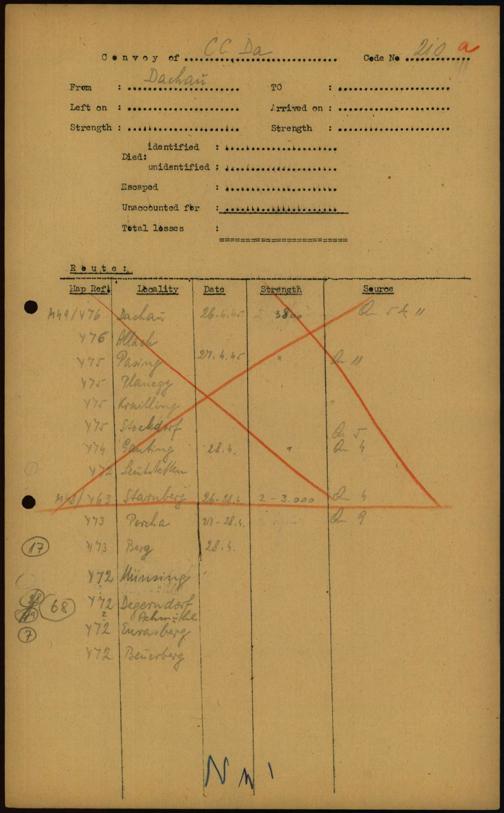 Convoy of CC Da Code No 210 a
From : Dachau TO :
Left on : Arrived on :
Strength : Strength :
identified :
Died:
unidentified :
Escaped :
Unaccounted for :
Total losses :
Route:
Map Ref. Locality Date Strength Source
M49/Y76 Dachau 26.4.45 3800 Qu 5 & 11
Y76 Allach
Y75 Pasing 27.4.45 " Qu 11
Y75 Planegg
Y75 Krailling "
Y75 Stockdorf Qu 5
Y74 Gauting 28.4. " Qu 4
Y72 Leutstetten
Y63 Starnberg 26-28.4. 2-3.000 Qu 4
Y73 Percha 27-28.4. Qu 9
17 Y73 Berg 28.4.
Y72 Münsing
68 Y72 Degerndorf
?
7 Y72 Eurasberg
Y72 Beuerberg